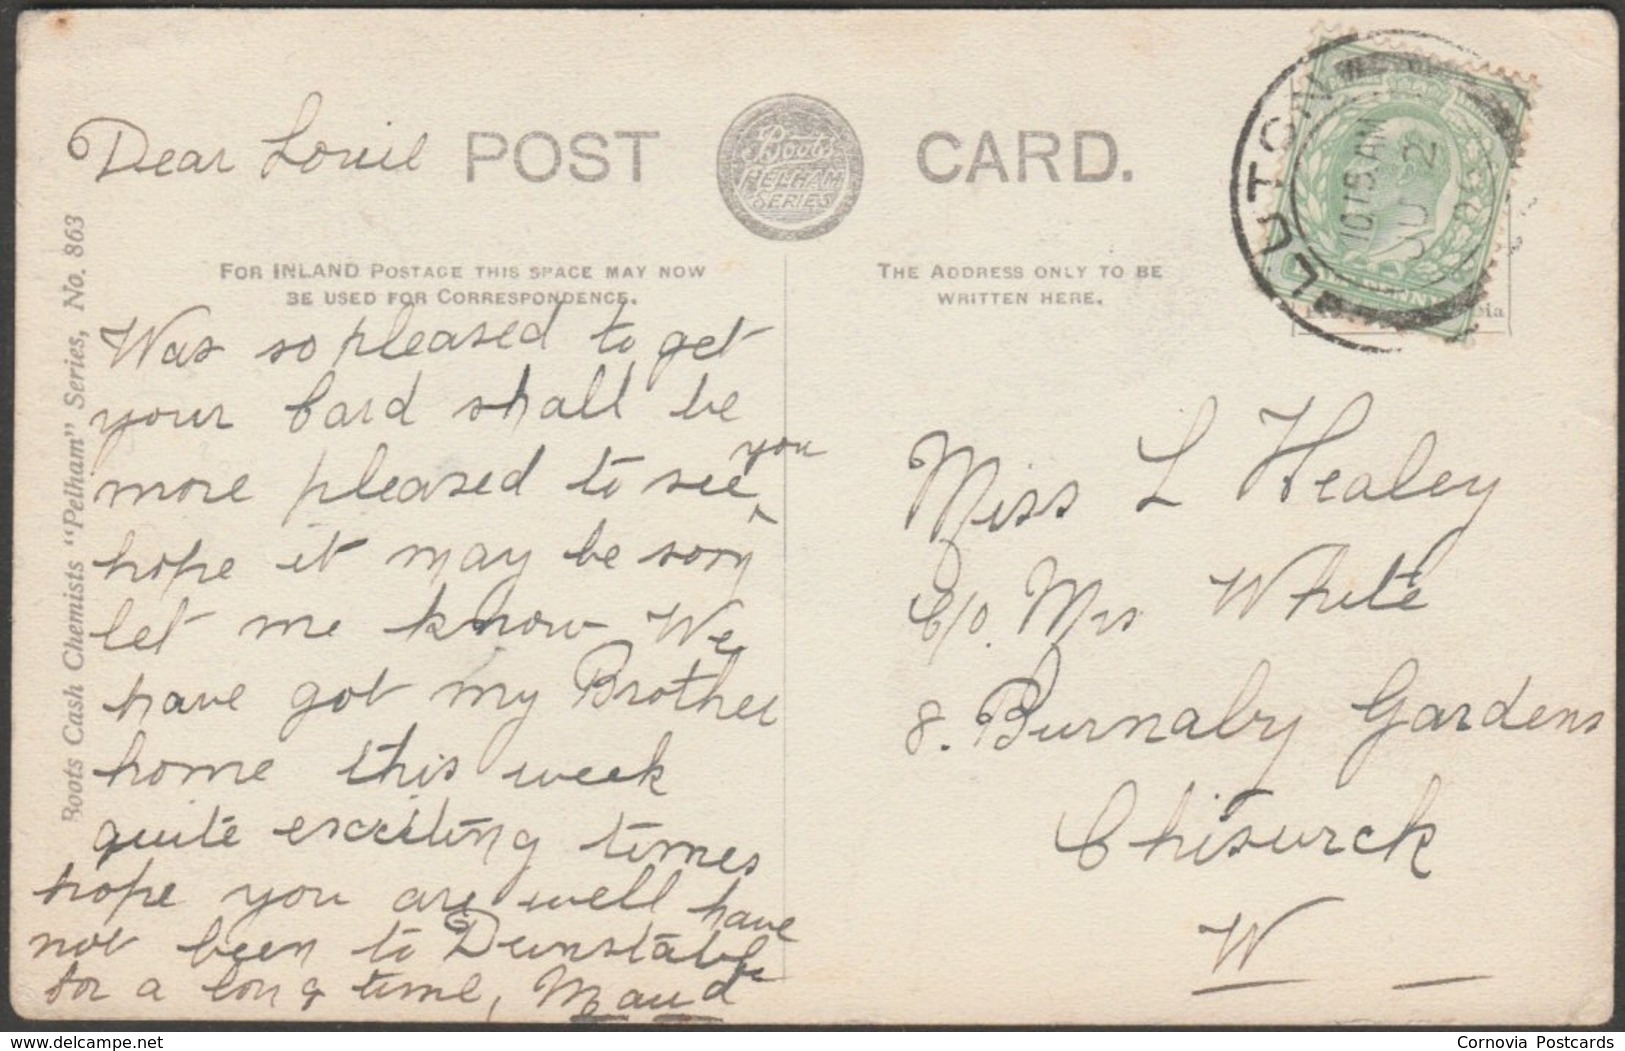 Dear Louie
POST CARD.
Boots
PELHAM
SERIES
FOR INLAND POSTAGE THIS SPACE MAY NOW
BE USED FOR CORRESPONDENCE.
THE ADDRESS ONLY TO BE
WRITTEN HERE.
LUTON
10 15 AM
JU 2
Was so pleased to get
your Card shall be
more pleased to see you
hope it may be soon
let me know We
have got my Brother
home this week
quite exciting times
hope you are well have
not been to Dunstable
for a long time, Maud
Miss L Healey
C/o. Mrs White
8. Burnaby Gardens
Chiswick
W
Boots Cash Chemists "Pelham" Series, No. 863
delcampe.net
Cornovia Postcards